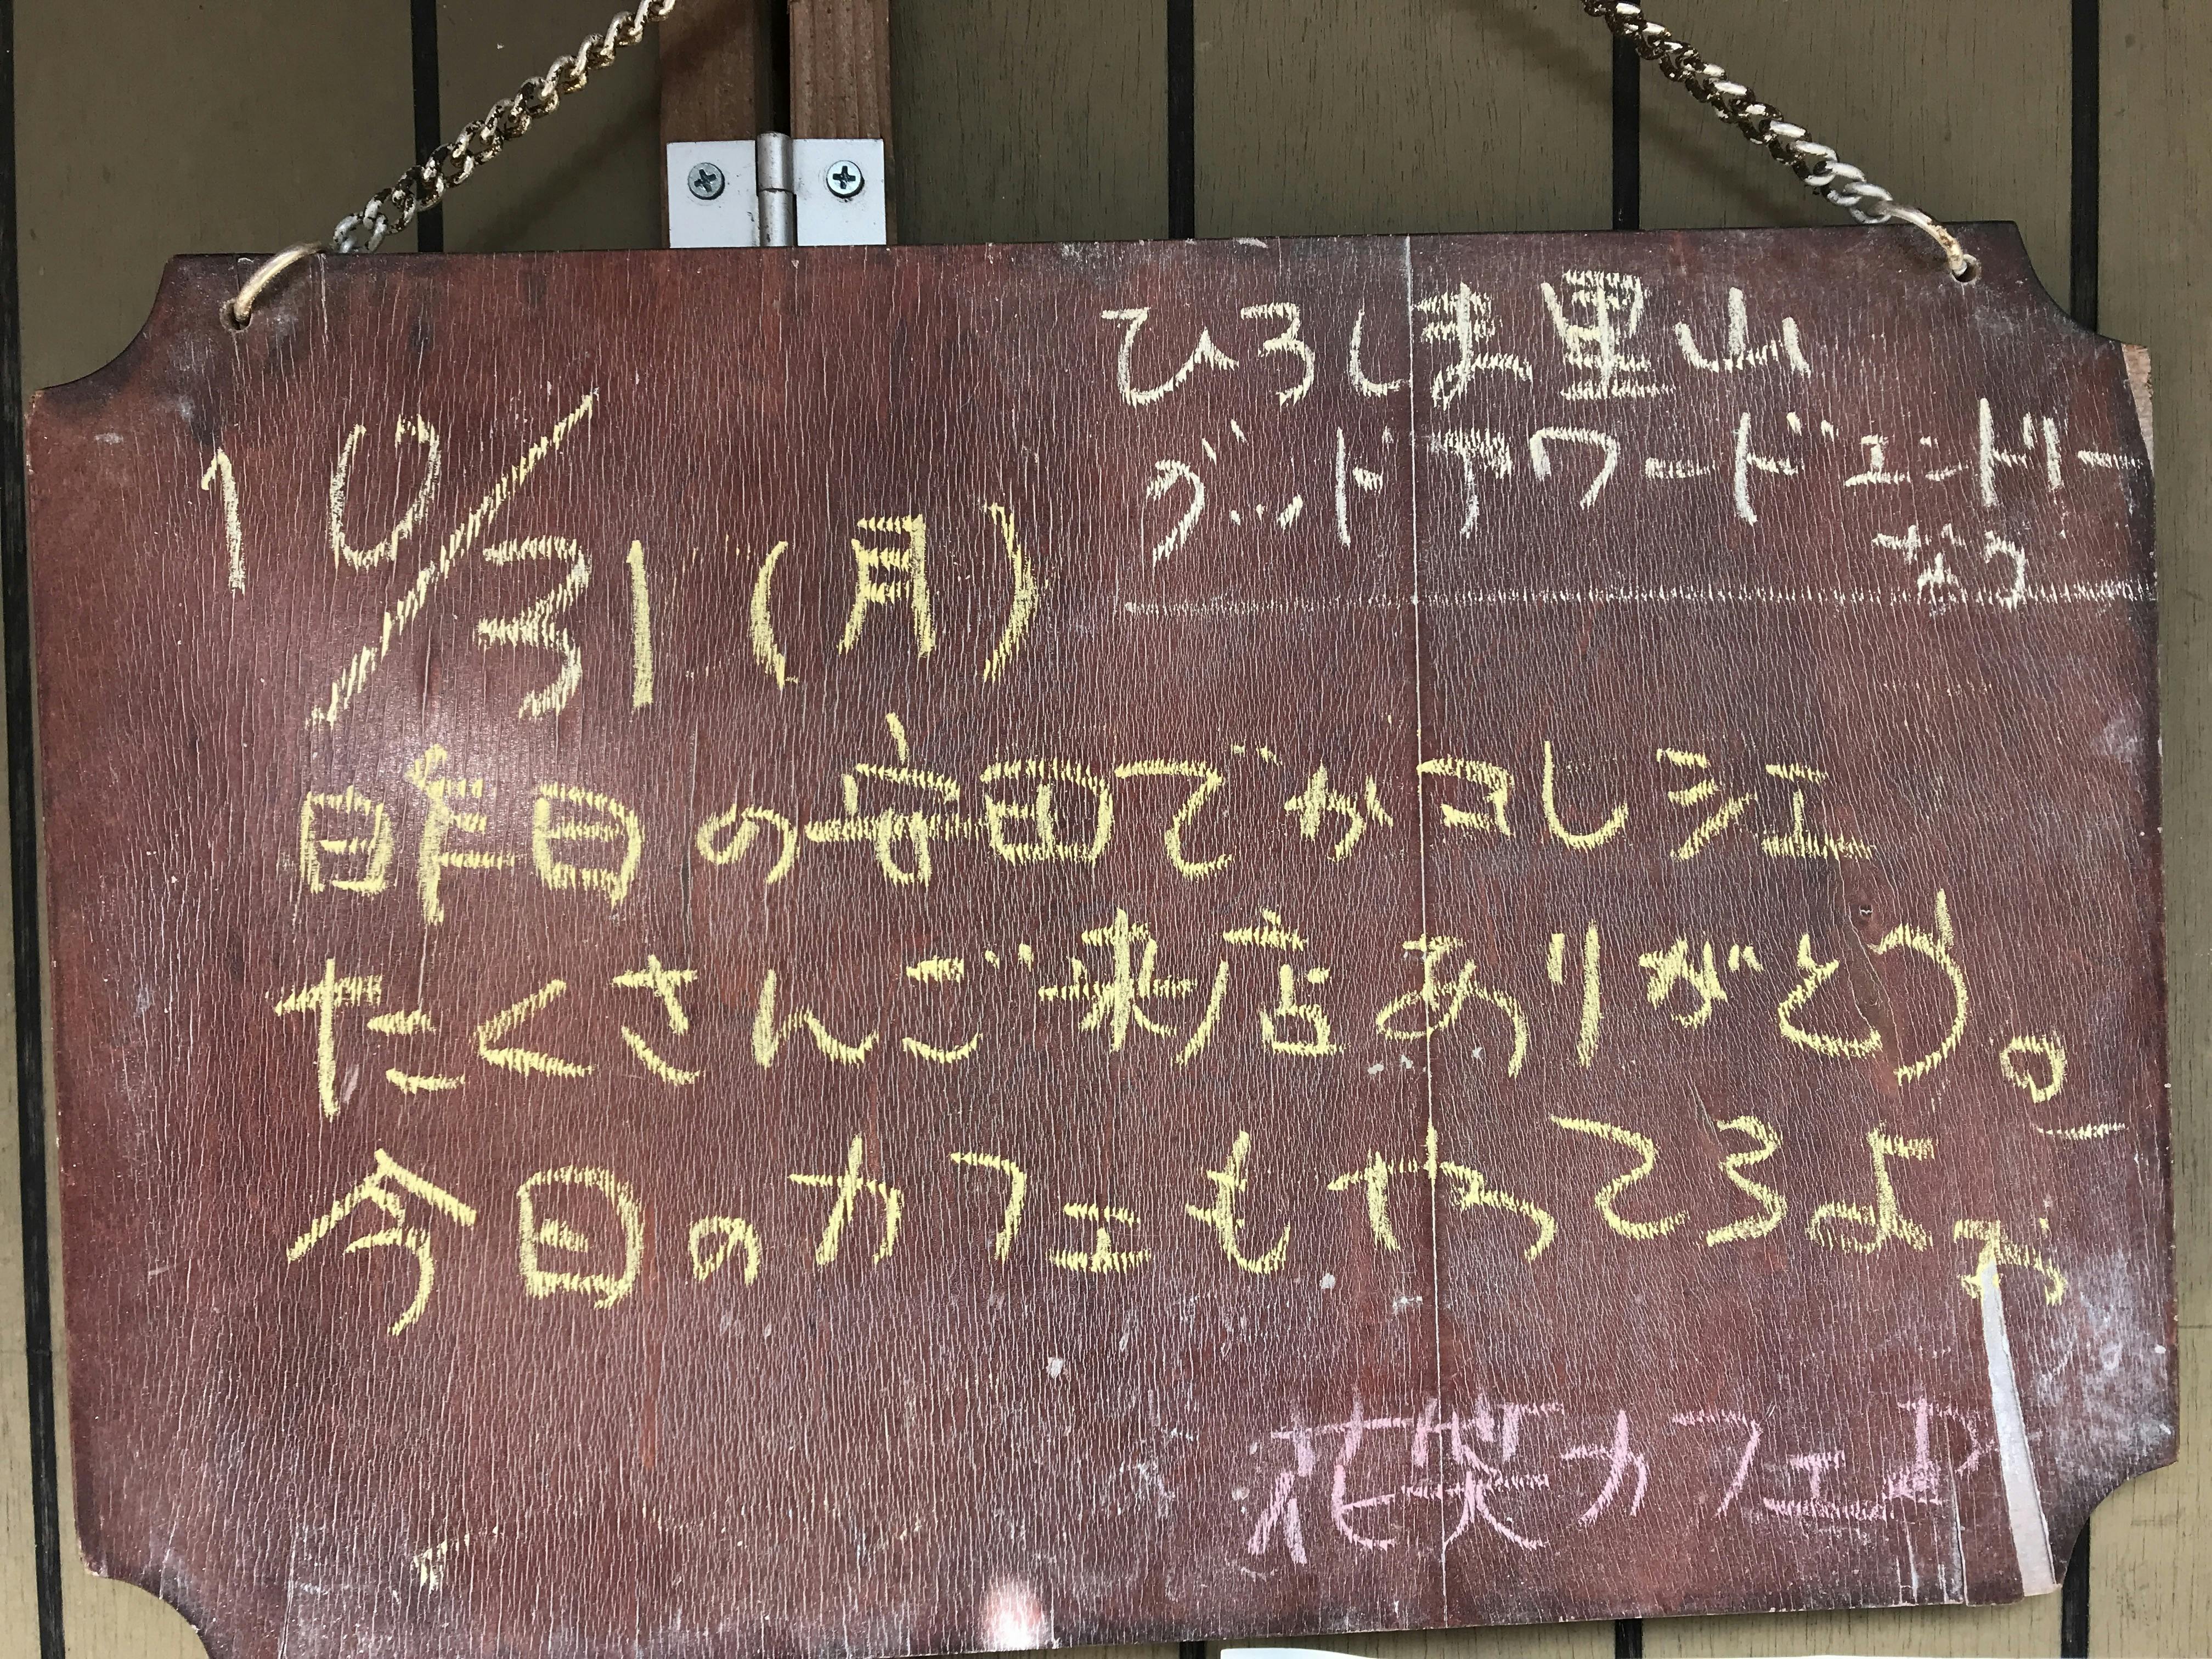 ひろしま里山
グッドアワードエントリー
なう
10/31(月)
昨日の安田で
たくさんご来店ありがとう。
今日のカフェもやってるよぉ
カフェ